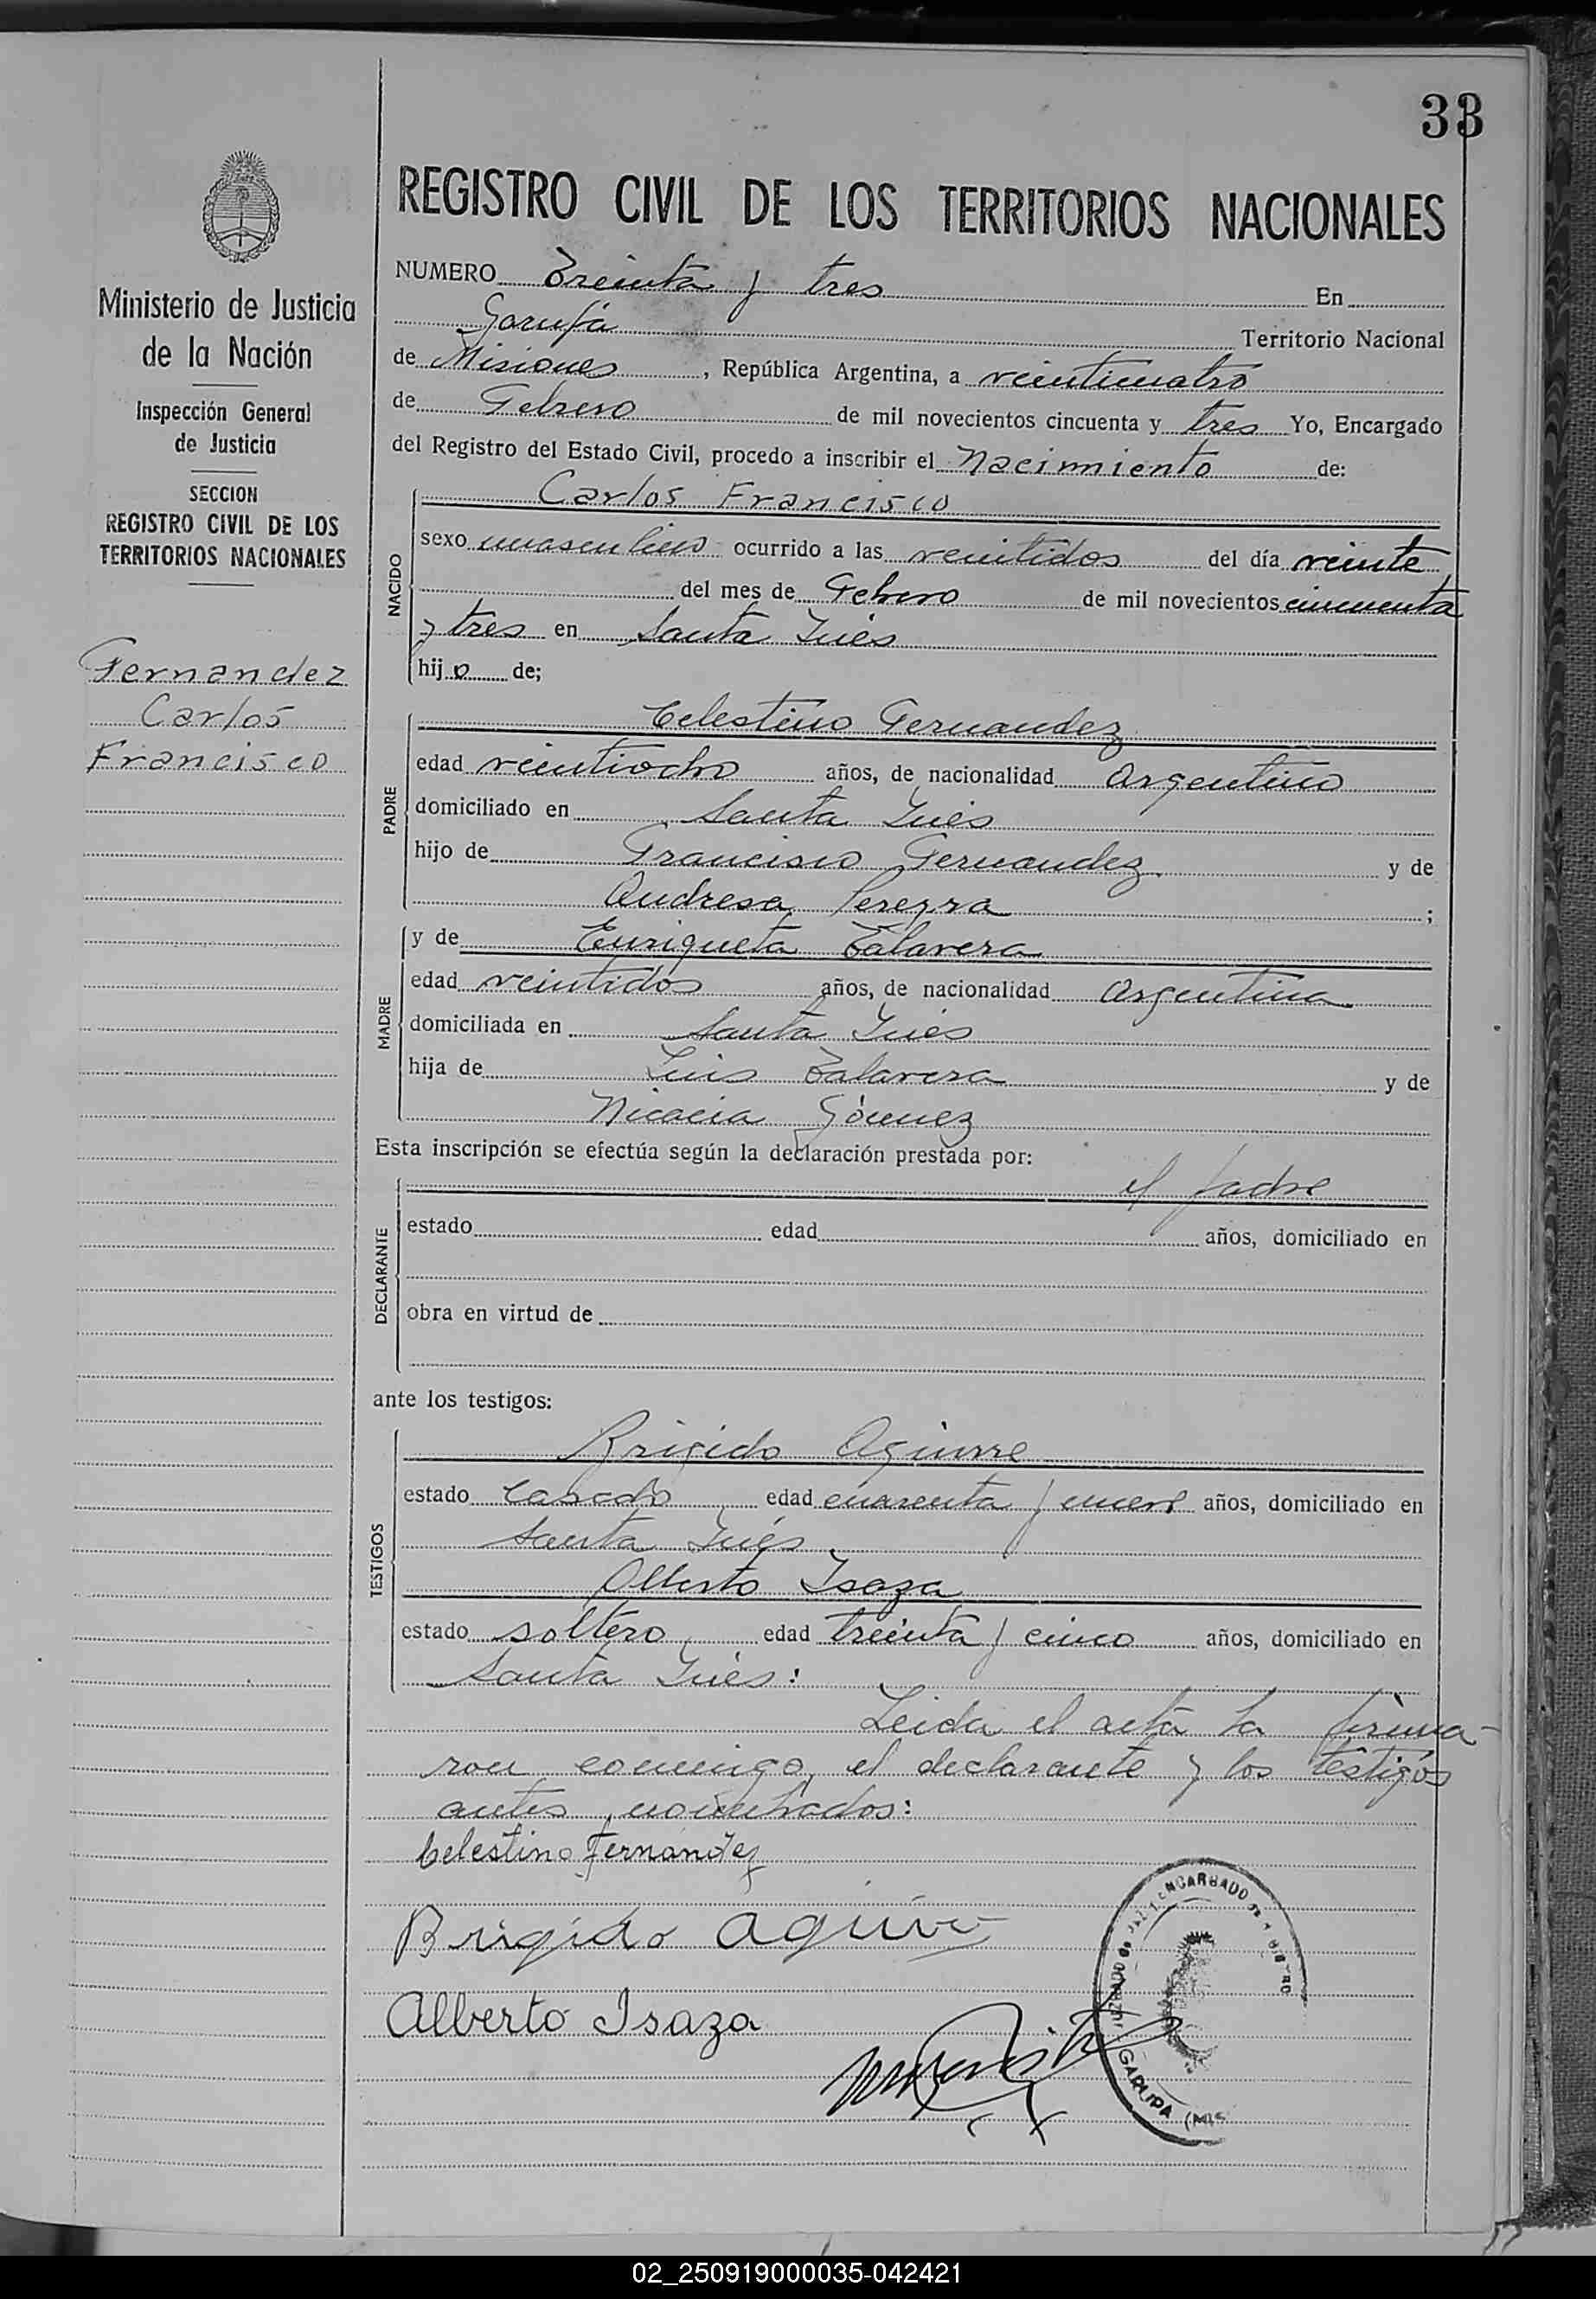 33
REGISTRO CIVIL DE LOS TERRITORIOS NACIONALES
Ministerio de Justicia
de la Nación
Inspección General
de Justicia
SECCION
REGISTRO CIVIL DE LOS
TERRITORIOS NACIONALES
Fernandez
Carlos
Francisco
NUMERO Treinta y tres En
Garupá Territorio Nacional
de Misiones, República Argentina, a veinticuatro
de Febrero de mil novecientos cincuenta y tres Yo, Encargado
del Registro del Estado Civil, procedo a inscribir el Nacimiento de:
NACIDO
Carlos Francisco
sexo masculino ocurrido a las veintidos del día veinte
del mes de Febrero de mil novecientos cincuenta
y tres en Santa Inés
hijo de;
PADRE
Celestino Fernandez
edad veintiocho años, de nacionalidad Argentino
domiciliado en Santa Inés
hijo de Francisco Fernandez y de
Andresa Pereyra ;
MADRE
y de Enriqueta Talavera
edad veintidos años, de nacionalidad Argentina
domiciliada en Santa Inés
hija de Luis Talavera y de
Nicacia Gómez
Esta inscripción se efectúa según la declaración prestada por:
DECLARANTE
el padre
estado edad años, domiciliado en
obra en virtud de
ante los testigos:
TESTIGOS
Brigido Aguirre
estado Casado edad cuarenta y nueve años, domiciliado en
Santa Inés
Alberto Isaza
estado soltero edad treinta y cinco años, domiciliado en
Santa Inés:
Leida el acta la firma-
ron conmigo, el declarante y los testigos
antes nombrados:
Celestino Fernández
Brigido Aguirre
Alberto Isaza
ENCARGADO
GARUPA (MIS
02_250919000035-042421